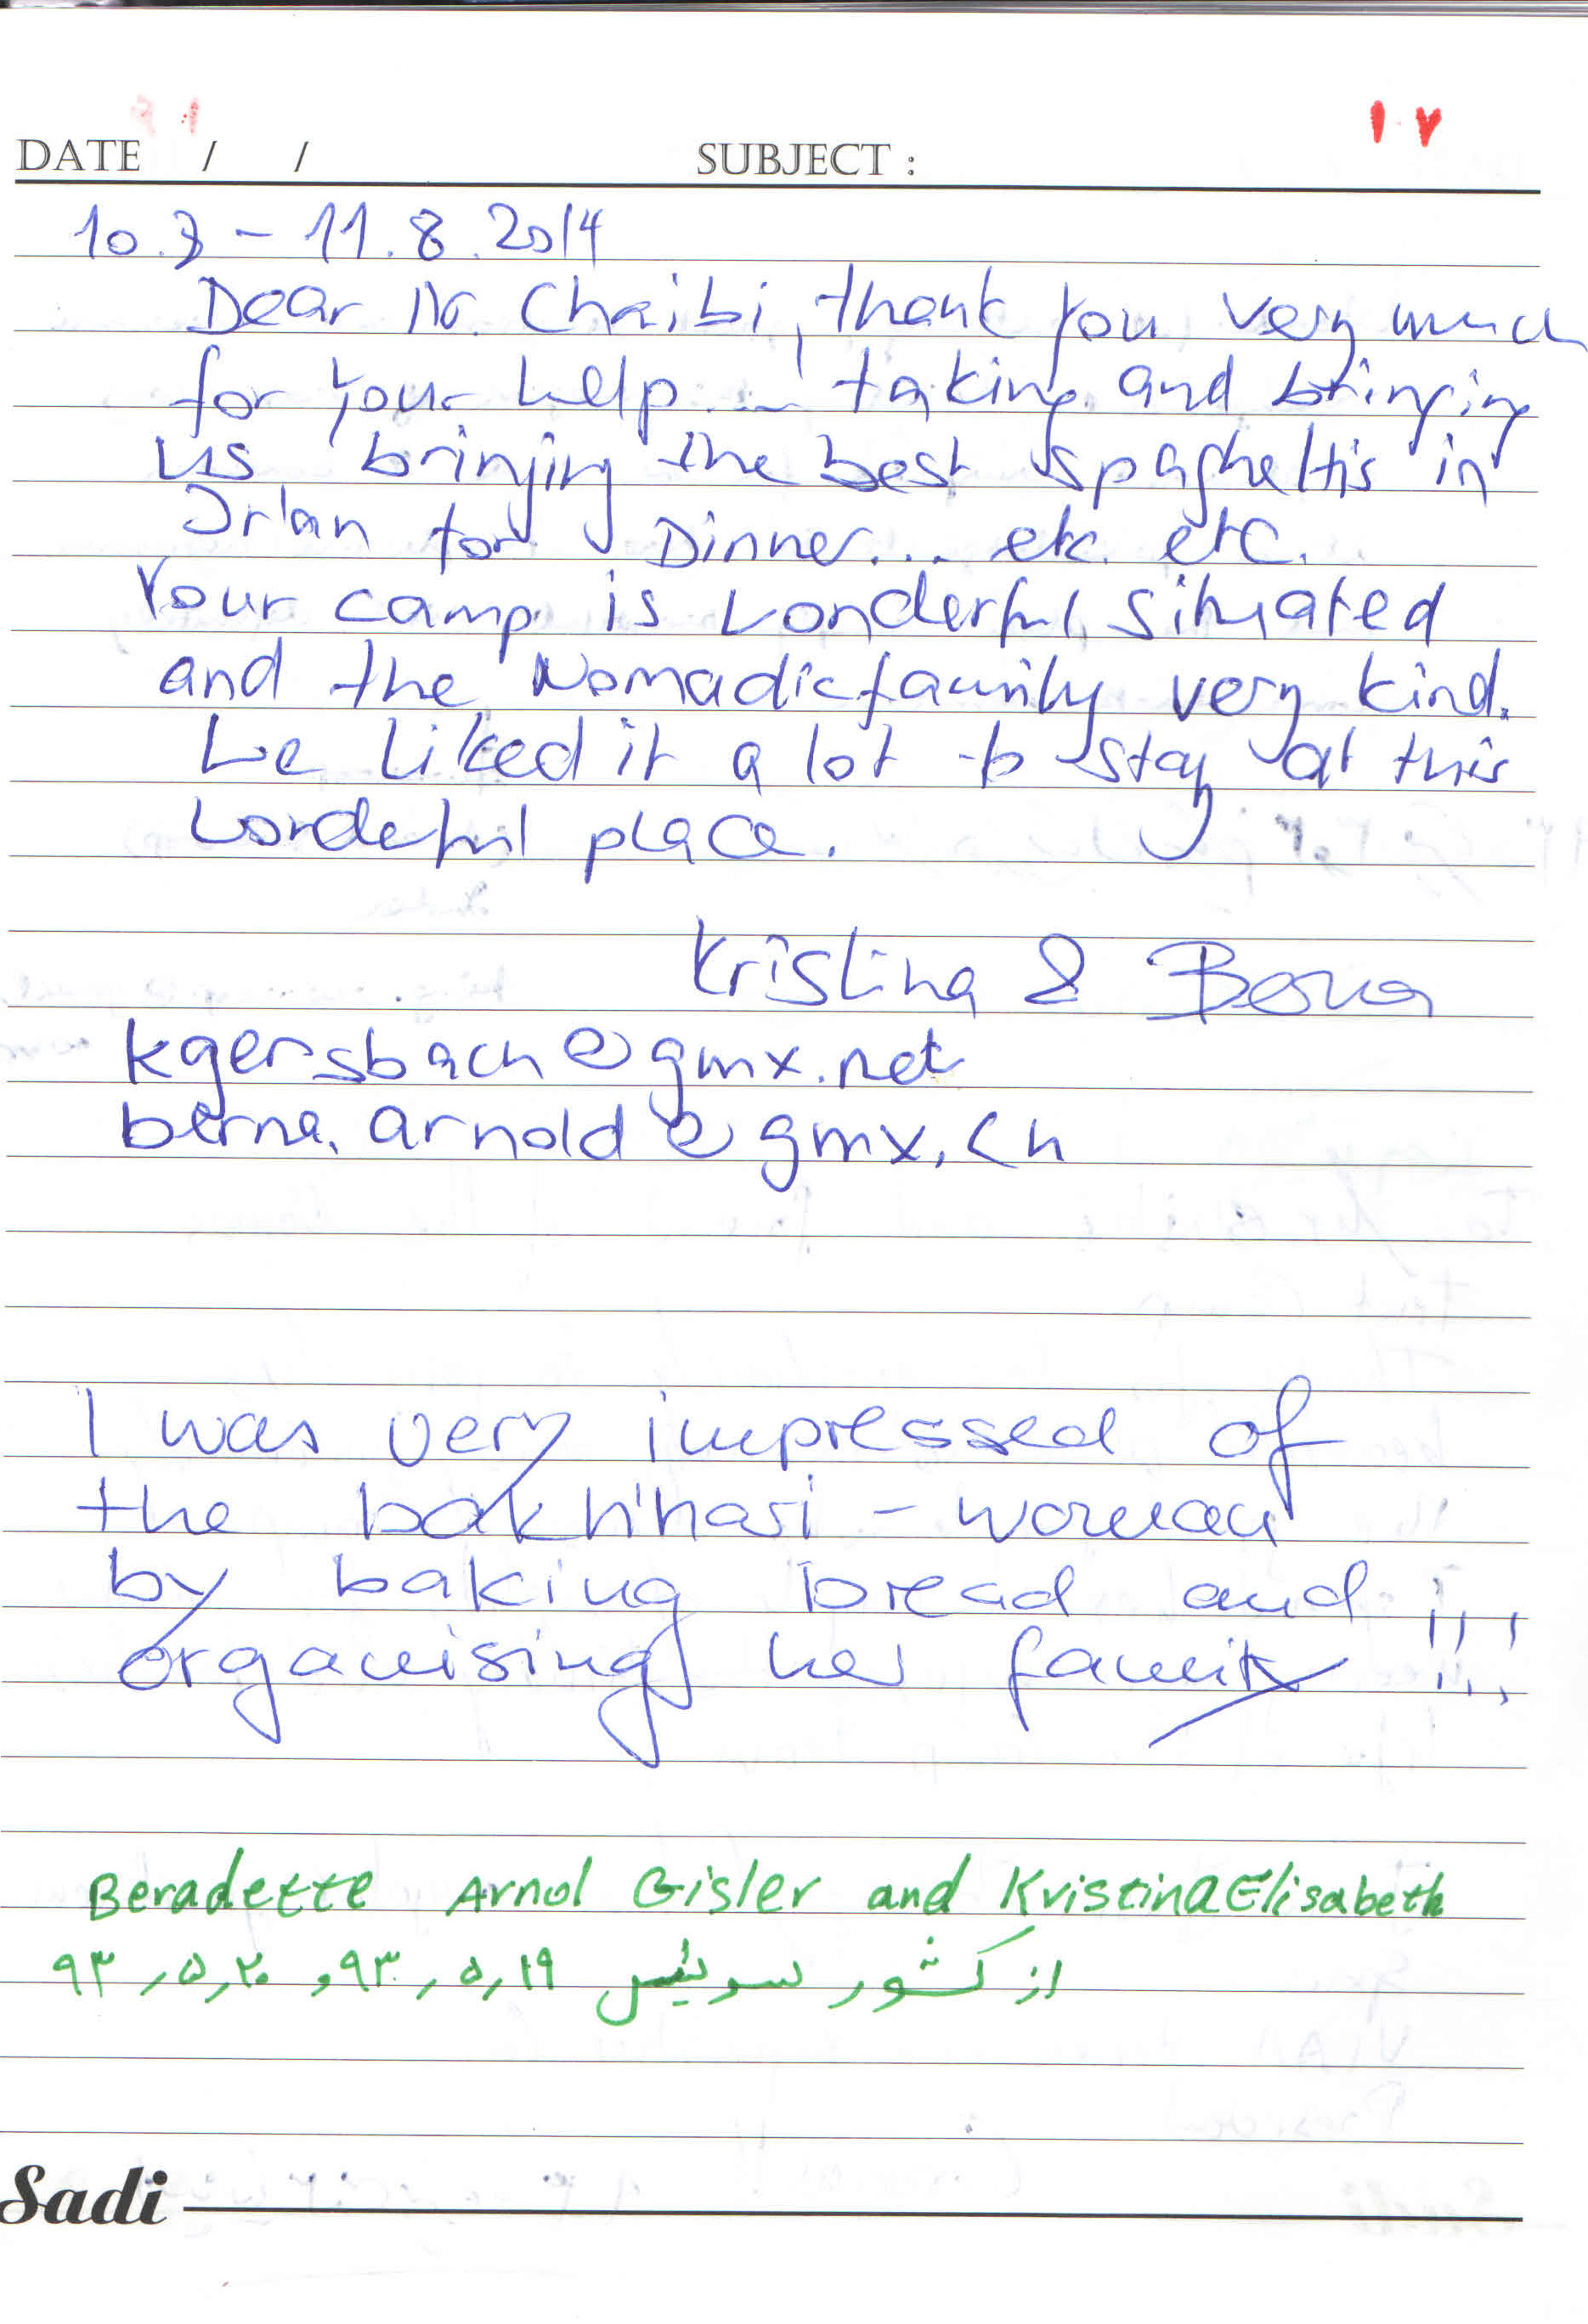 ۱۷
DATE / / SUBJECT :
10.8 – 11.8.2014
Dear Mr. Chaibi, thank you very much
for your help ... taking and bringing
us bringing the best spaghettis in
Irlan for Dinner... etc. etc.
Your camp is wonderful situated
and the Nomadicfamily very kind.
We liked it a lot to stay at this
wordeful place.
Kristina & Berna
kgersbach@gmx.net
berna.arnold@gmx.ch
I was very impressed of
the bakhtiari - woman
by baking bread and
organising her family !!!
Beradette Arnol Gisler and Kristina Elisabeth
از کشور سوئیس ۹۳٫۵٫۱۹ و ۹۳٫۵٫۲۰
Sadi